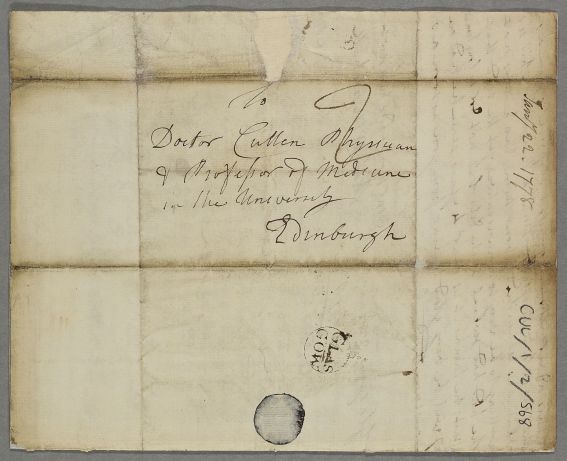 To
Doctor Cullen Physician
& Professor of Medicine
in the University
Edinburgh
2
22. 1778
CUL/1/2/568
GLAS
GOW